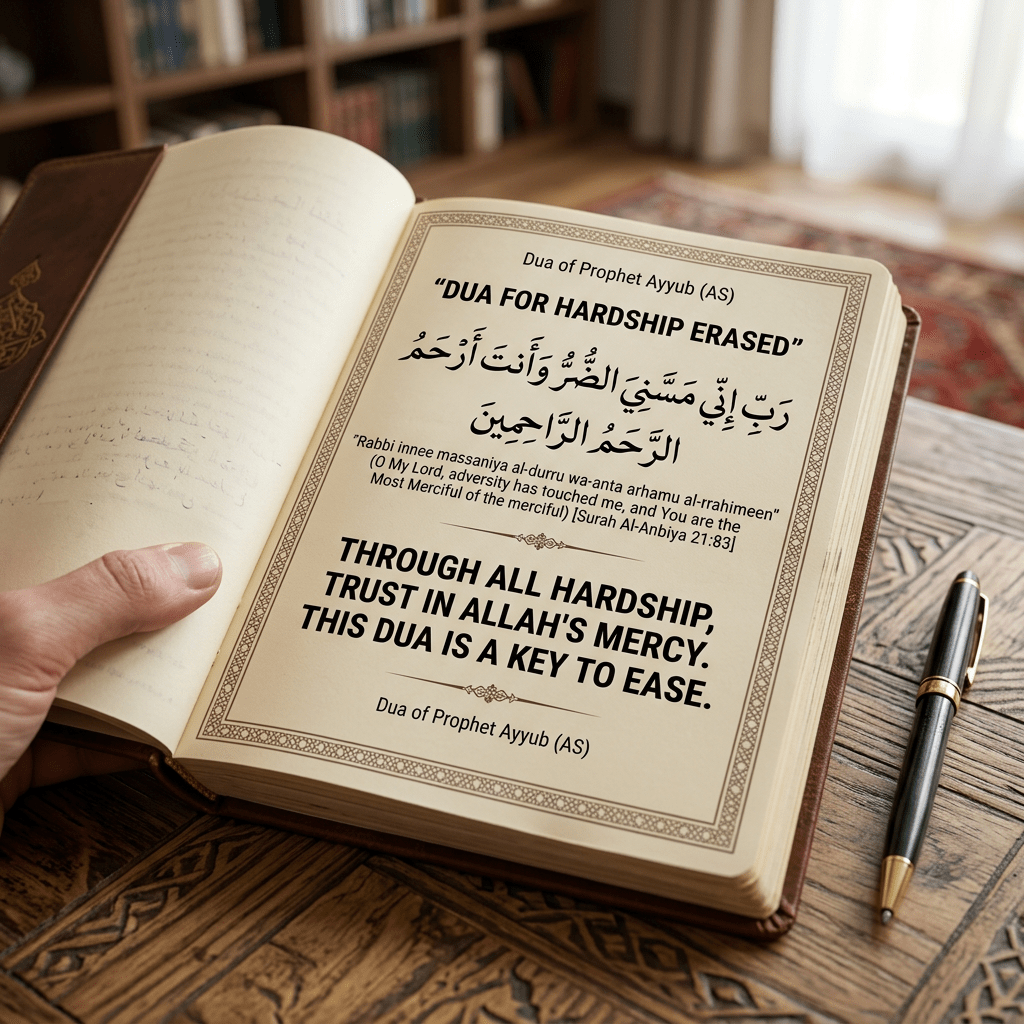 Dua of Prophet Ayyub (AS)
“DUA FOR HARDSHIP ERASED”
رَبِّ إِنِّي مَسَّنِيَ الضُّرُّ وَأَنتَ أَرْحَمُ
الرَّحَمُ الرَّاحِمِينَ
"Rabbi innee massaniya al-durru wa-anta arhamu al-rrahimeen"
(O My Lord, adversity has touched me, and You are the
Most Merciful of the merciful) [Surah Al-Anbiya 21:83]
THROUGH ALL HARDSHIP,
TRUST IN ALLAH'S MERCY.
THIS DUA IS A KEY TO EASE.
Dua of Prophet Ayyub (AS)